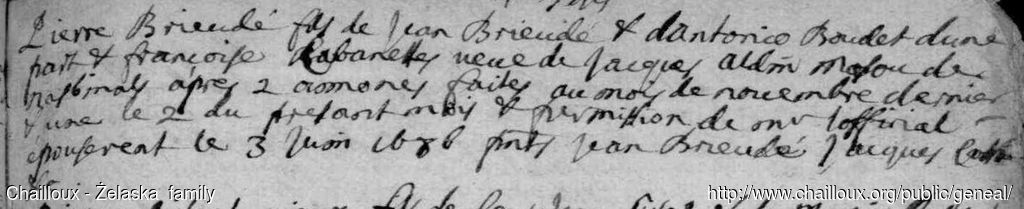 Pierre Brieudé fils de Jean Brieudé & dAntonio Boudet dune
part & françoise Rabanettes veue de Jacques Aldin masou de
nasbinals apres 2 anonces faites au mois de novembre dernier
& une le 2 du present mois & permission de mr lofficial
epouserent le 3 Juin 1686 pnts Jean Brieudé Jacques
Chailloux - Żelaska family
http://www.chailloux.org/public/geneal/